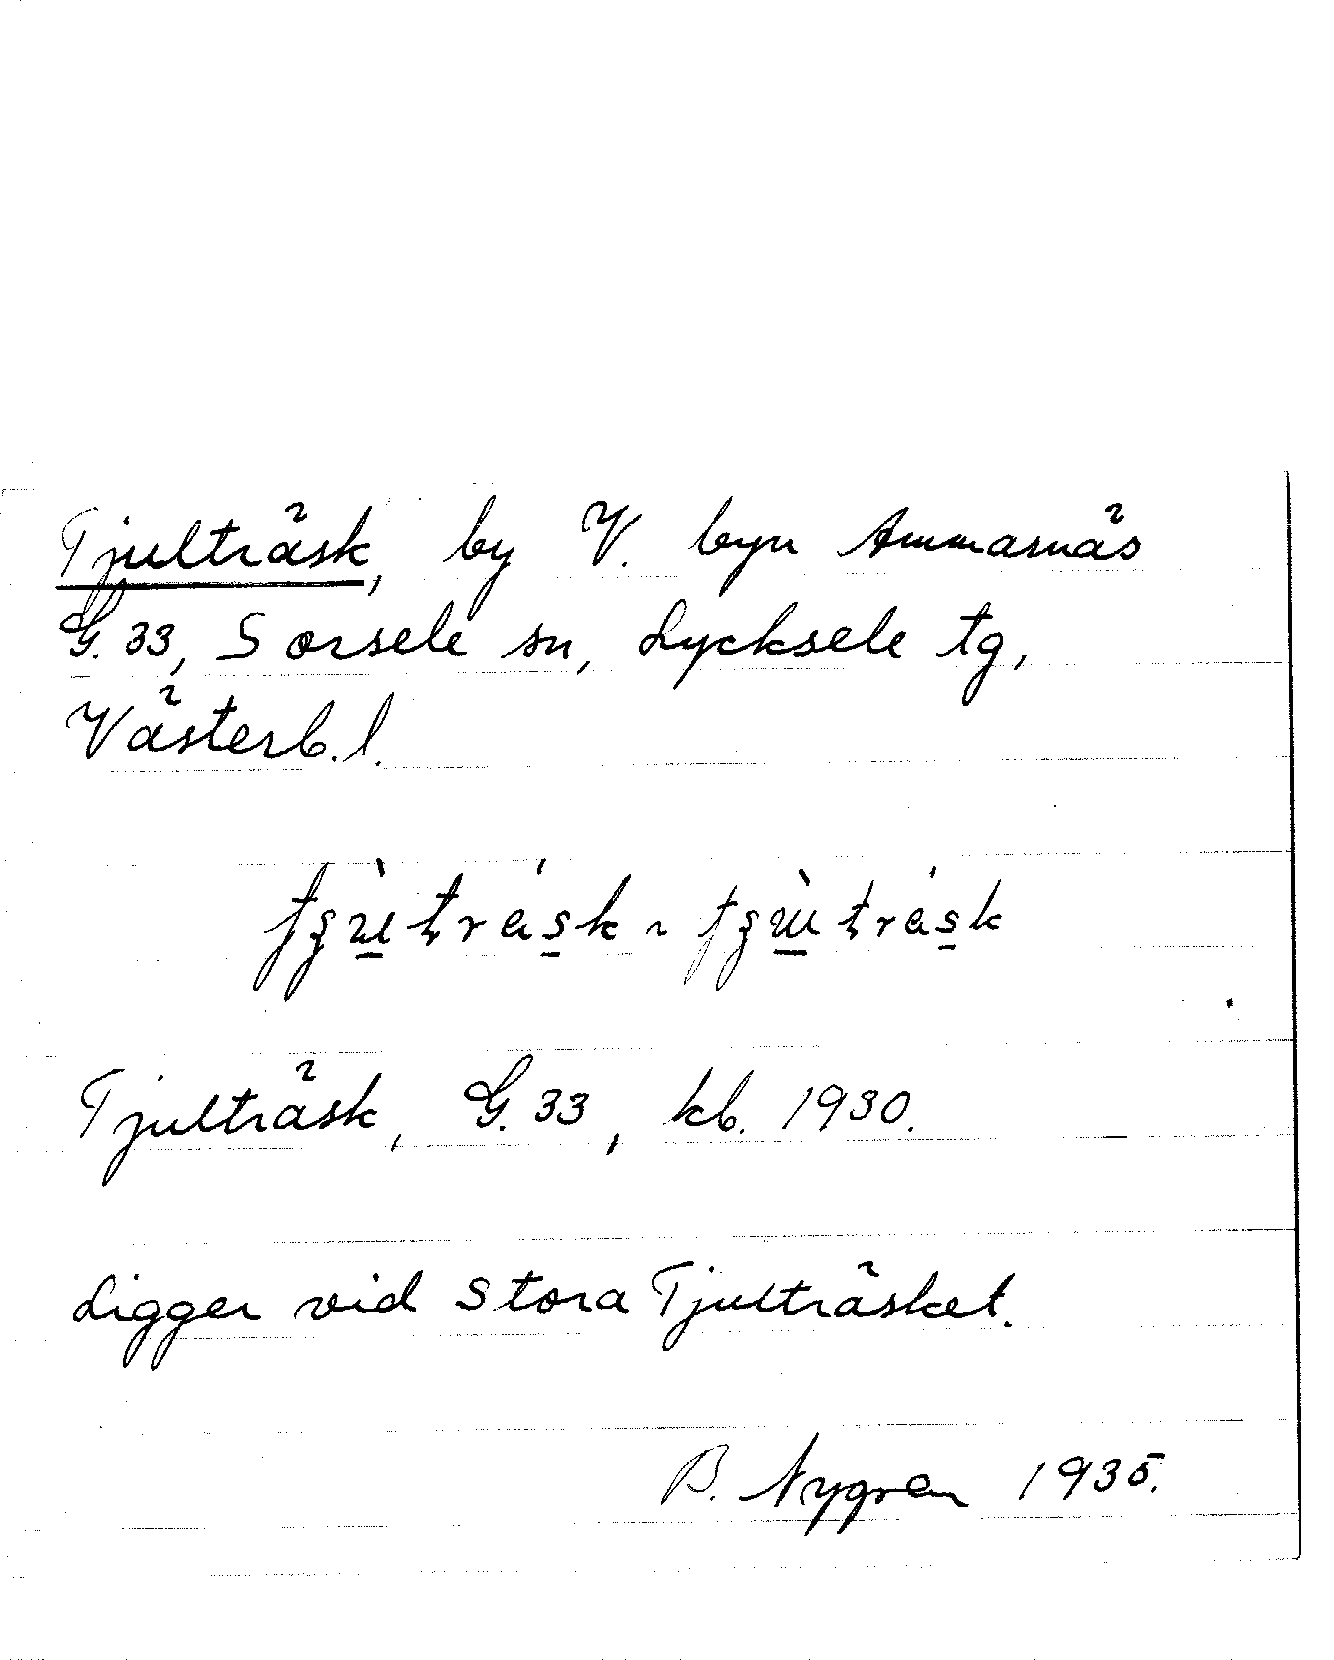 Tjulträsk, by V. byn Ammarnäs
G. 33, Sorsele sn, Lycksele tg,
Västerb. l.
Tjulträsk, G. 33, kb. 1930.
Ligger vid Stora Tjulträsket.
B. Nygren 1935.